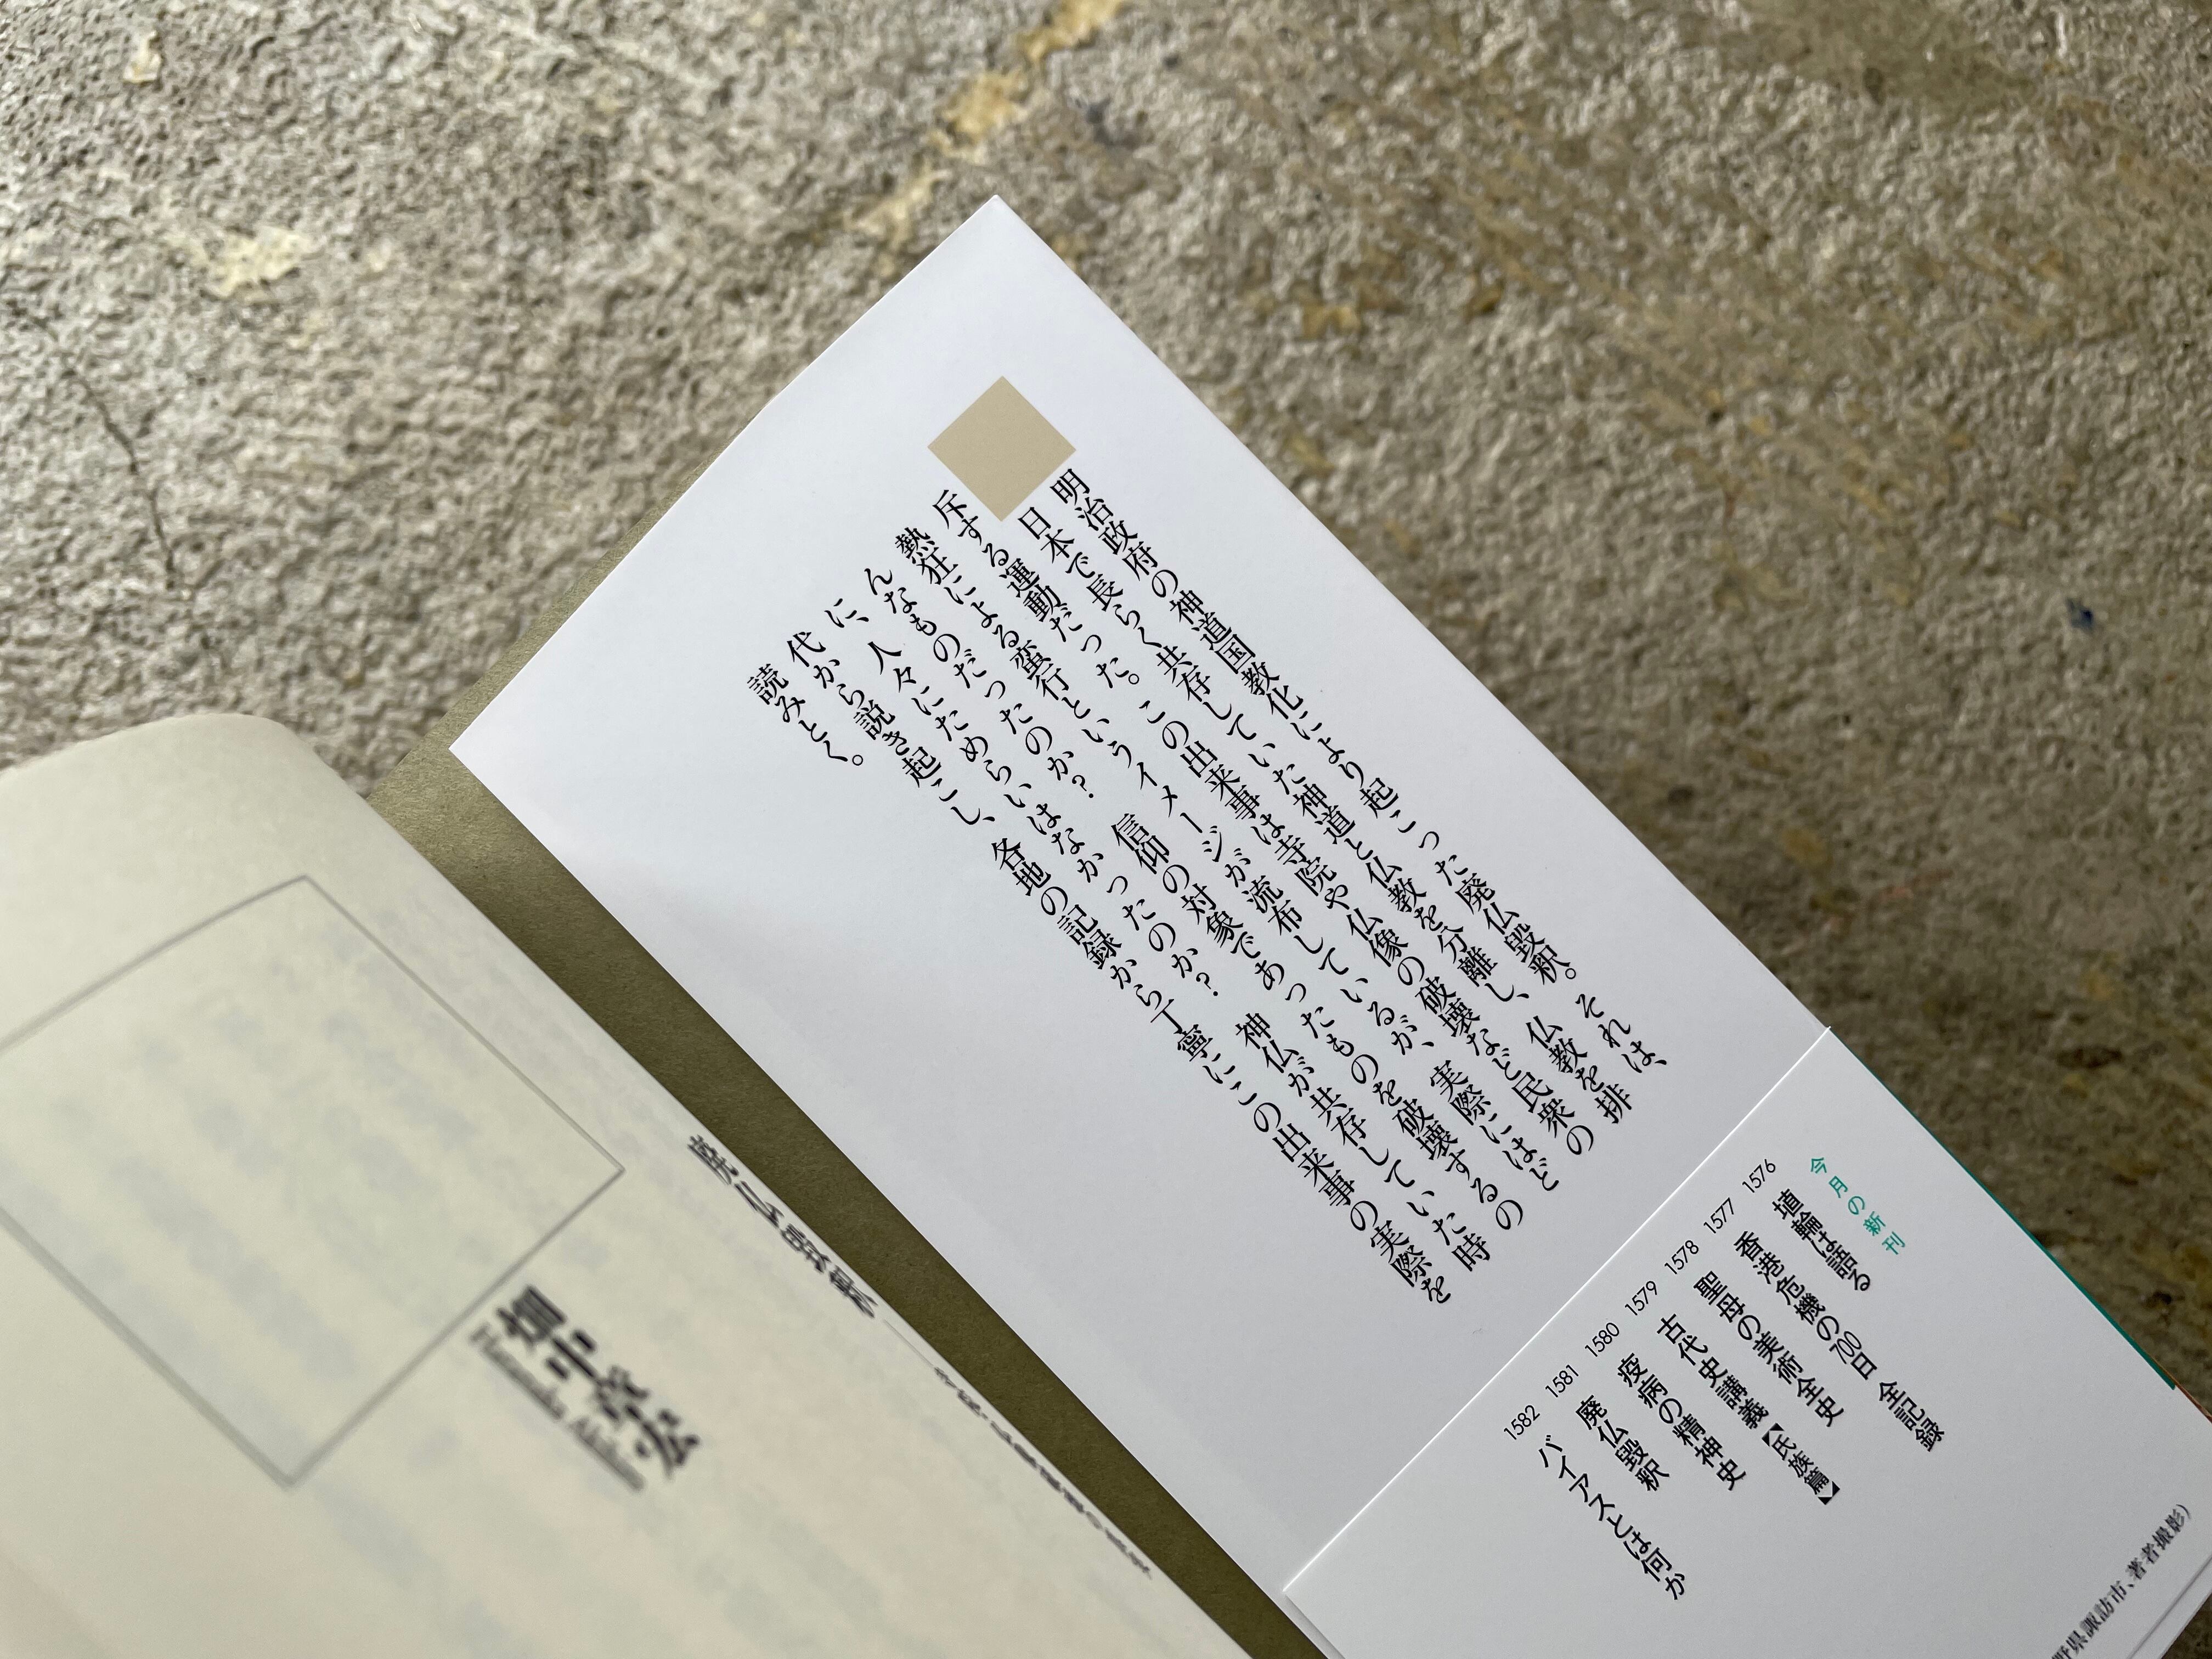 明治政府の神道国教化により起こった廃仏毀釈。それは、
日本で長らく共存していた神道と仏教を分離し、仏教を排
斥する運動だった。この出来事は寺院や仏像の破壊など民衆の
熱狂による蛮行というイメージが流布しているが、実際にはど
んなものだったのか？ 信仰の対象であったものを破壊するの
に、人々にためらいはなかったのか？ 神仏が共存していた時
代から説き起こし、各地の記録から丁寧にこの出来事の実際を
読みとく。
今月の新刊
1576 埴輪は語る
1577 香港危機の700日 全記録
1578 聖母の美術全史
1579 古代史講義【氏族篇】
1580 疫病の精神史
1581 廃仏毀釈
1582 バイアスとは何か
野県諏訪市、著者撮影）
廃仏毀釈
畑中章宏